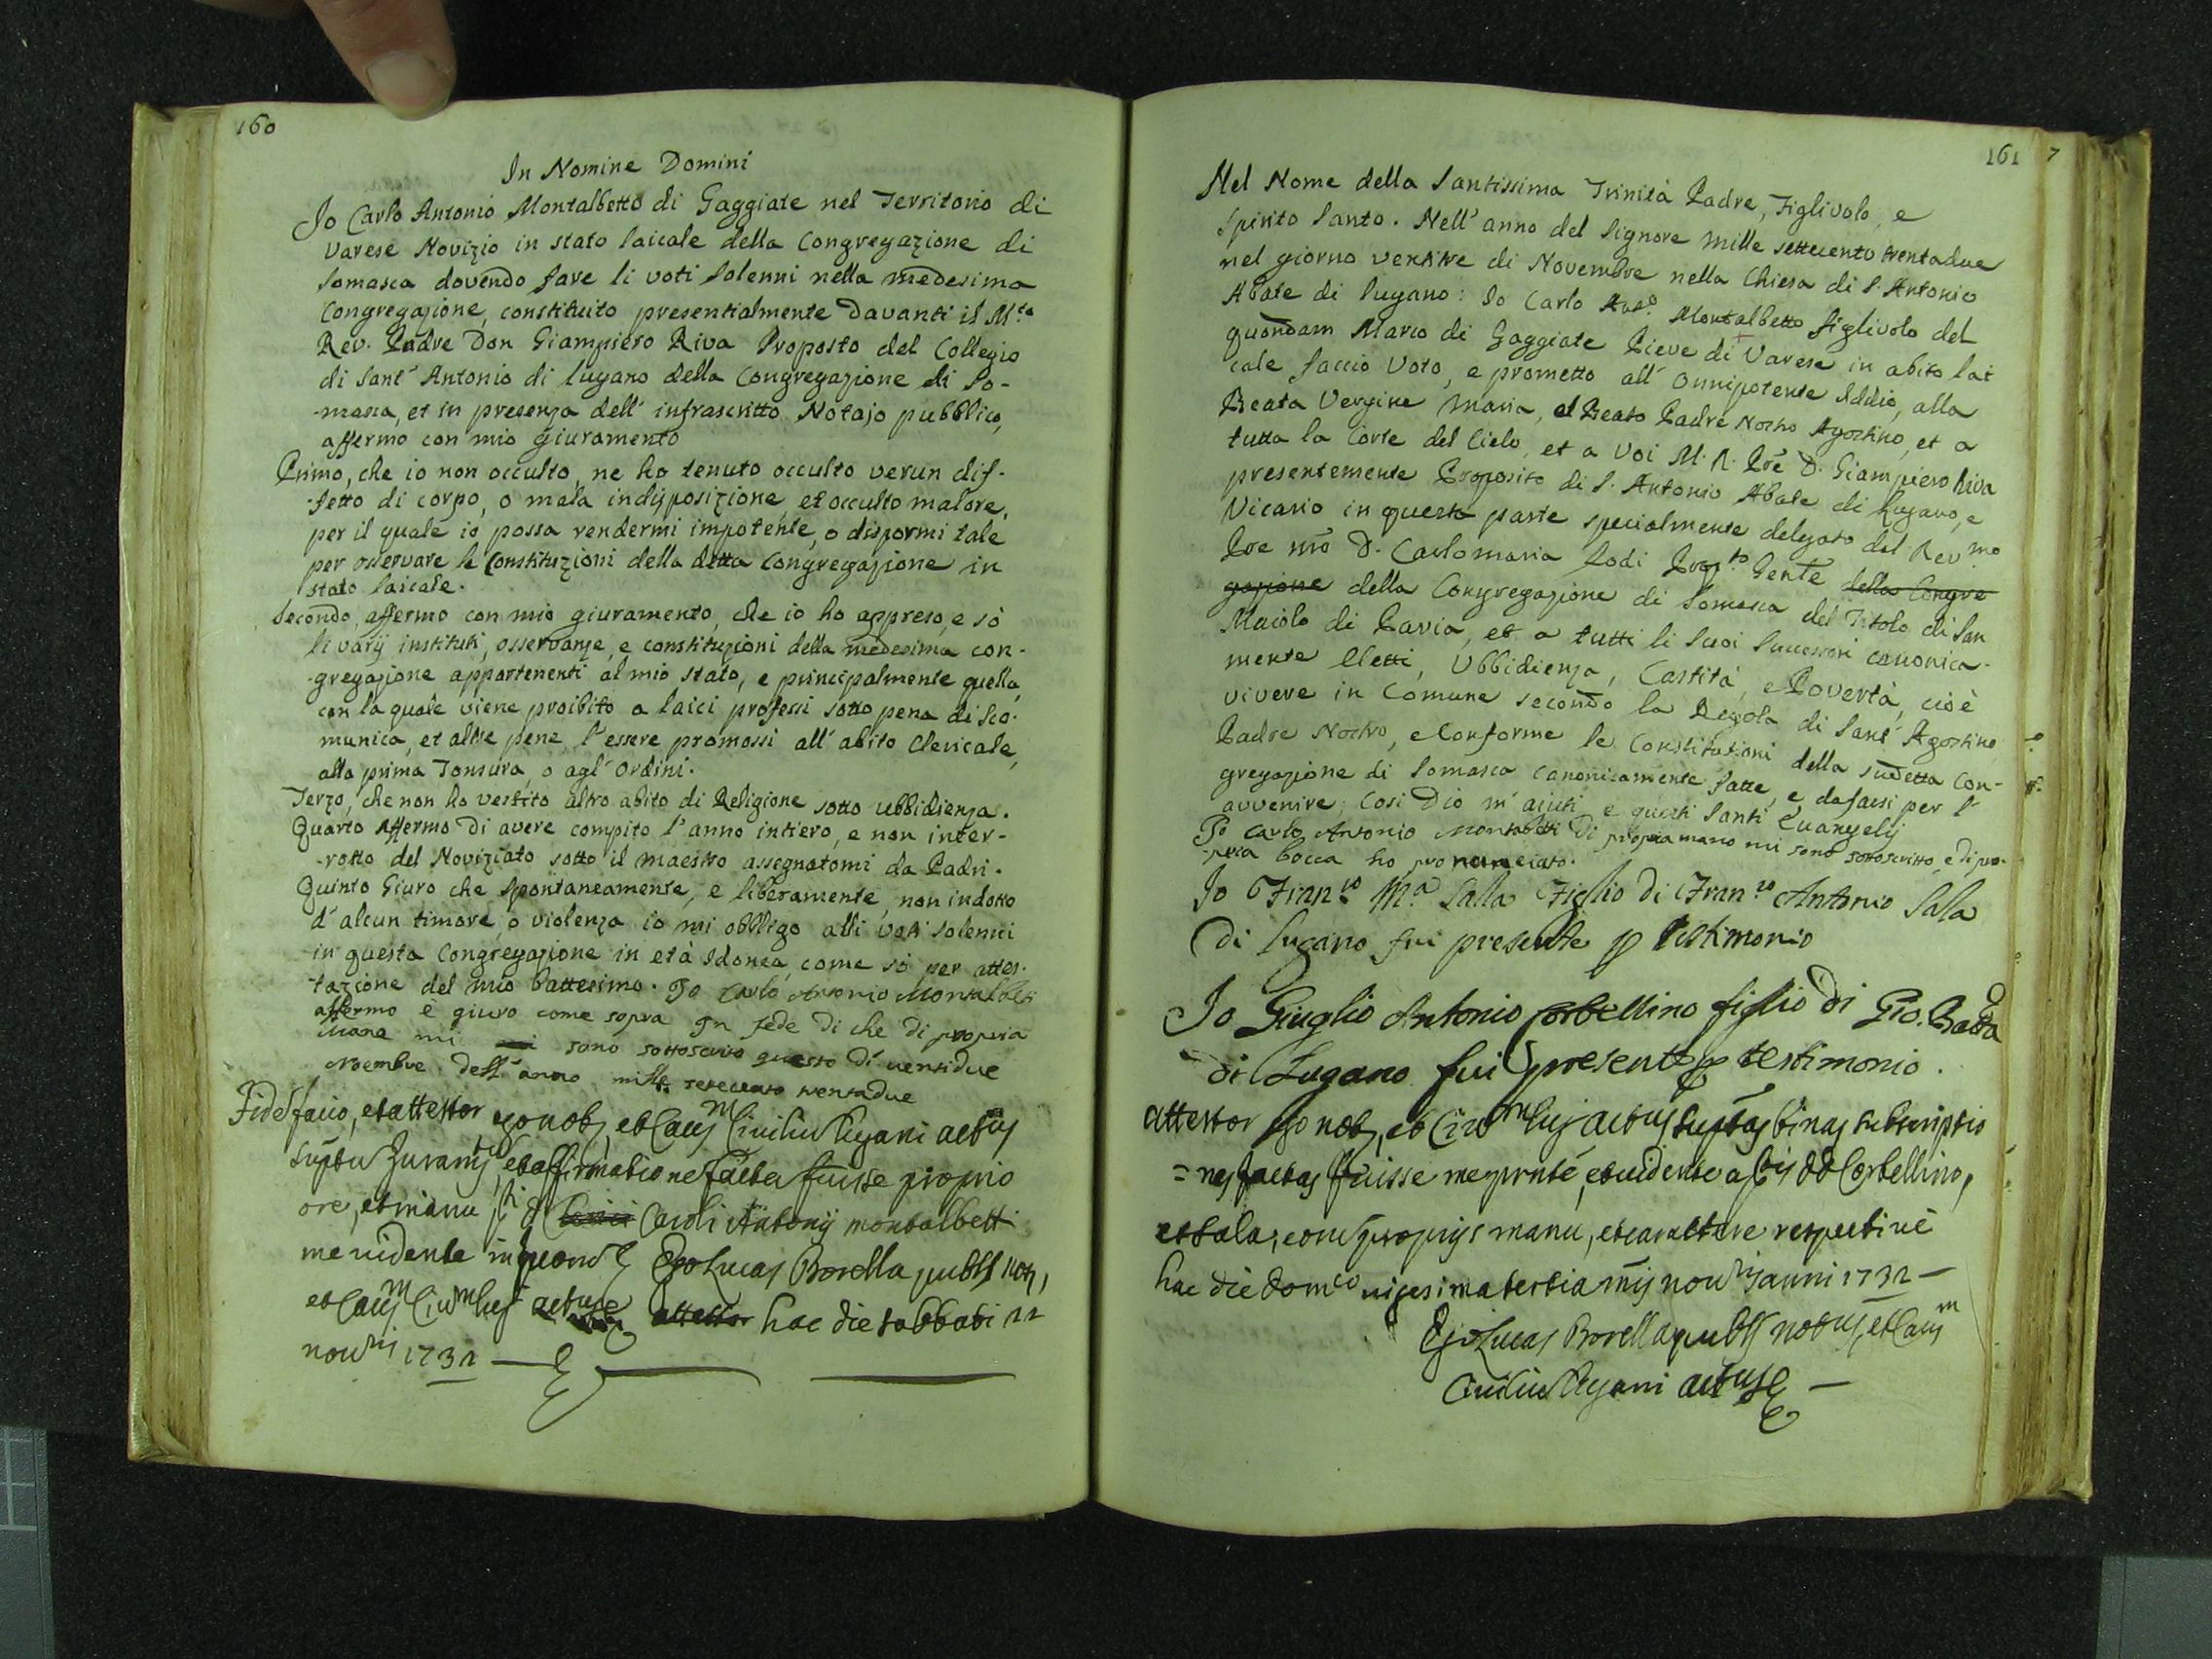 160
In Nomine Domini
Jo Carlo Antonio Montalbetto di Gaggiate nel Territorio di
Varese Novizio in stato laicale della Congregazione di
Somasca dovendo fare li voti solenni nella medesima
Congregazione, constituito presentialmente davanti il M.to
Rev. Padre Don Giampiero Riva Proposto del Collegio
di Sant' Antonio di Lugano della Congregazione di So-
-masca, et in presenza dell' infrascritto Notajo pubblico,
affermo con mio giuramento
Primo, che io non occulto, ne ho tenuto occulto verun dif-
-fetto di corpo, o mala indisposizione, et occulto malore,
per il quale io possa rendermi impotente, o dispormi tale
per osservare le Constituzioni della detta Congregazione in
stato laicale.
Secondo, affermo con mio giuramento, che io ho appreso, e sò
li varij instituti, osservanze, e constituzioni della medesima con-
-gregazione appartenenti al mio stato, e principalmente quella,
con la quale viene proibito a laici professi sotto pena di sco-
munica, et altre pene, l'essere promossi all' abito Clericale,
alla prima Tonsura, o agl' Ordini.
Terzo, che non ho vestito altro abito di Religione sotto ubbidienza.
Quarto Affermo di avere compito l'anno intiero, e non inter-
-rotto del Noviziato sotto il maestro assegnatomi da Padri.
Quinto Giuro che spontaneamente, e liberamente, non indotto
d'alcun timore, o violenza io mi obbligo alli voti solenni
in questa Congregazione in età idonea, come sò per attes-
-tazione del mio battesimo. Jo Carlo Antonio Montalbeti
affermo è giuro come sopra In fede di che di propria
mano mi sono sottoscrito questo dí ventidue
Noembre dell' anno mille setecento trentadue
Fidem facio, et attestor ego not, et Caus Civilium Lugani actus
suptum Juram, et affirmationem factam fuisse proprio
ore, et manu Caroli Antonij montalbetti
me vidente in quorum Ego Lucas Borella publs not,
et Caus Civm hac die sabbati 22
novris 1732
161 7
Nel Nome della Santissima Trinità Padre, Figlivolo, e
Spirito Santo. Nell' anno del Signore mille settecento trentadue
nel giorno ventitre di Novembre nella Chiesa di S. Antonio
Abate di Lugano: Io Carlo Anto. Montalbetto figlivolo del
quondam Marco di Gaggiate Pieve di Varese in abito lai
cale faccio Voto, e prometto all' Onnipotente Iddio, alla
Beata Vergine Maria, al Beato Padre Nostro Agostino, et a
tutta la Corte del Cielo, et a Voi M. R. Pre D. Giampiero Riva
presentemente Proposito di S. Antonio Abate di Lugano, e
Vicario in questa parte specialmente delegato dal Rev.mo
Pre nro D. Carlomaria Lodi Prep.to Gen̄le della Congre
gazione della Congregazione di Somasca del Titolo di San
Maiolo di Pavia, et a tutti li suoi Successori canonica-
mente eletti, Ubbidienza, Castità, e Povertà, cioè
vivere in Comune secondo la Regola di Sant' Agostino
Padre Nostro, e Conforme le Constitutioni della sudetta Con-
gregazione di Somasca canonicamente fatte, e da farsi per l'
avvenire; Così Dio m'ajuti, e questi Santi Evangelij
Jo Carlo Antonio Montalbeti di propria mano mi sono sottoscritto, e di pro-
pria bocca ho pronunciato.
Jo Fran.co M.a Salla Figlio di Fran.co Antonio Sala
Di Lugano fui presente p testimonio
Jo Giuglio Antonio Corbellino figlio di Gio. Batta
di Lugano fui presente p testimonio.
attestor Ego not, et Civm hujus actus suptas binas subscriptio
=nes factas fuisse me pnte, et vidente a sctis DD Corbellino,
et Sala, eorum proprijs manu, et caractere respective
hac die domco vigesima tertia mis novris anni 1732 —
Ego Lucas Borella publs notus, et Caus
Civilium Lugani actus —